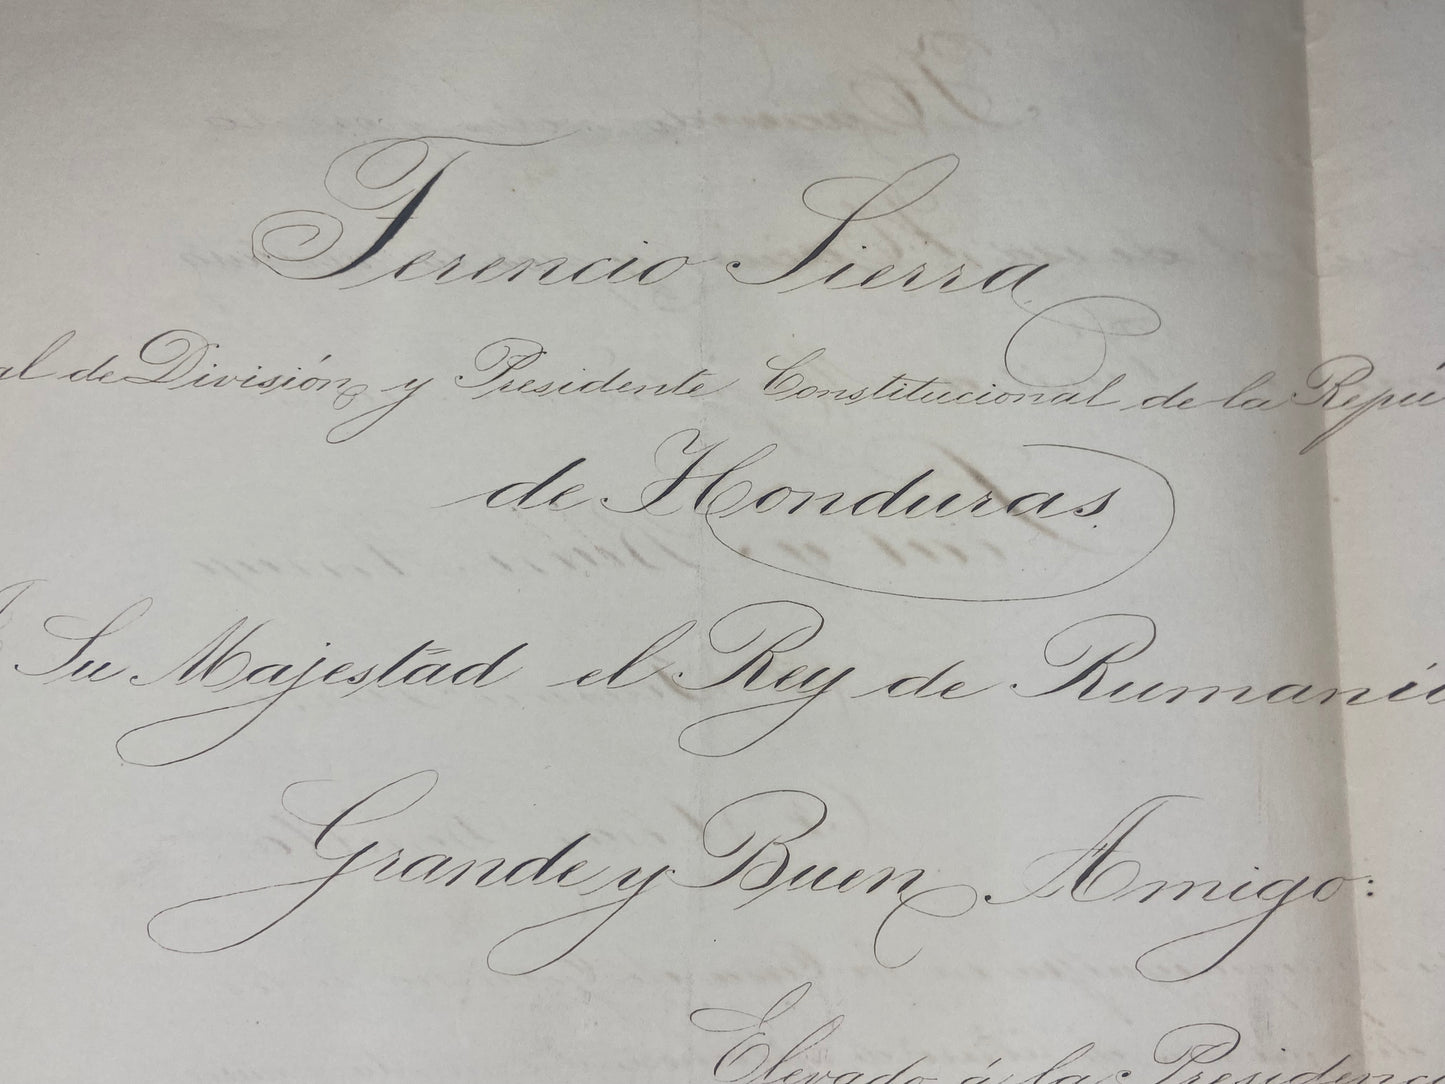 Terencio Sierra
al de División, y Presidente Constitucional de la Repú
de Honduras.
A Su Majestad el Rey de Rumaní
Grande y Buen Amigo:
Elevado á la Presidenc